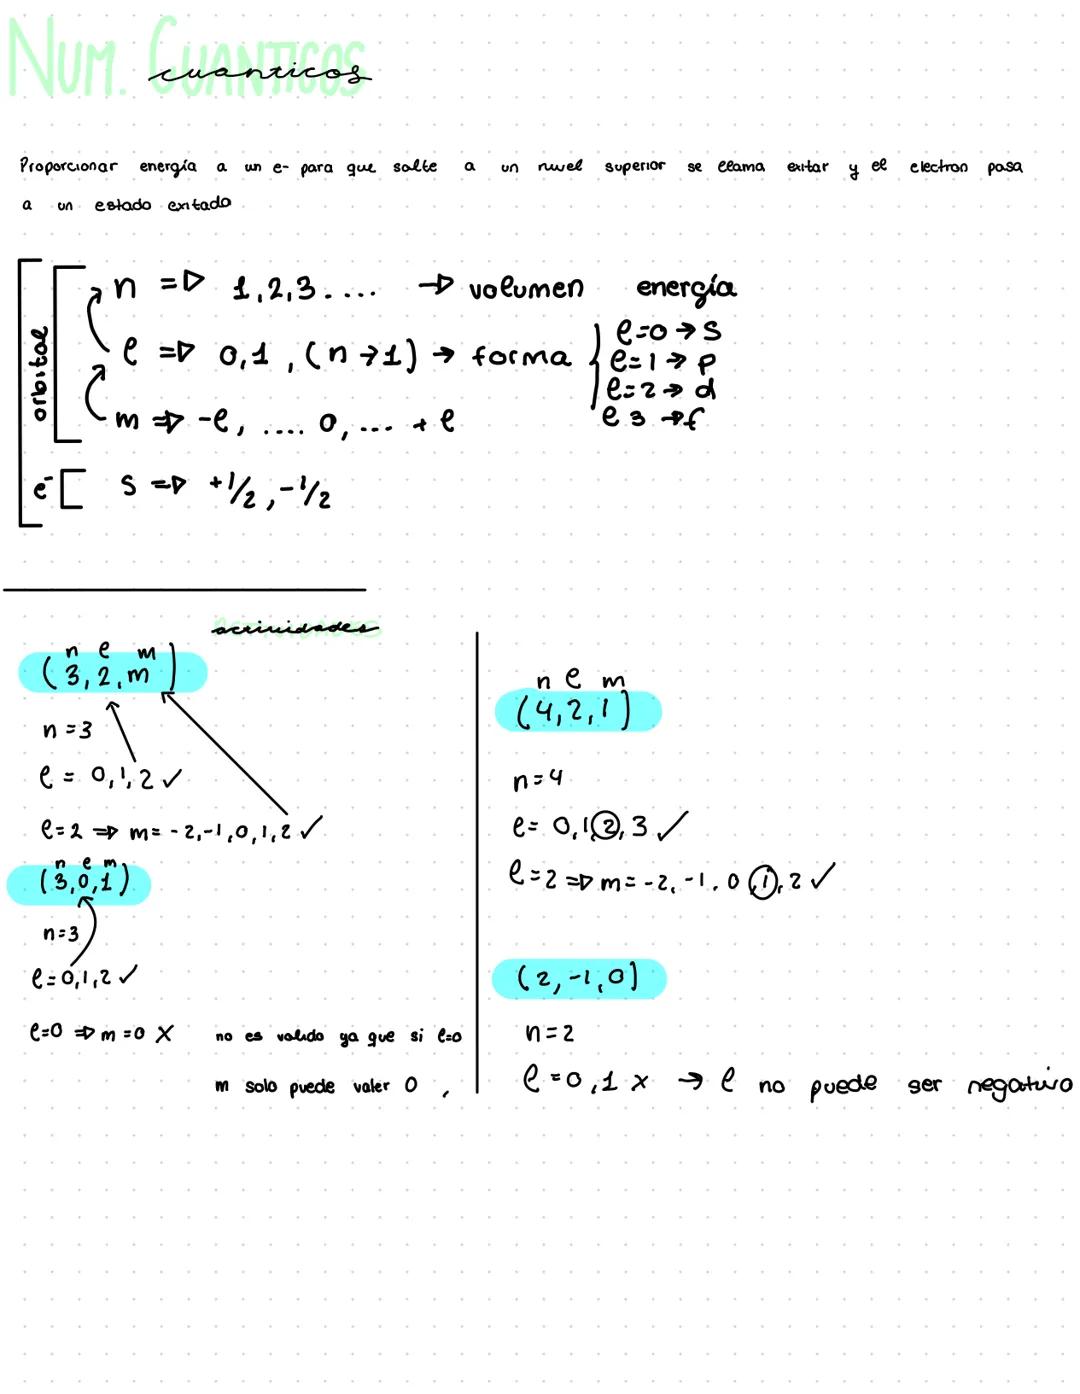 NUM. CUANTICOS
cuanticos
Proporcionar energía a un e- para que salte a un nivel superior se llama exitar y el electron pasa
a un estado exitado
orbital
n => 1,2,3.... → volumen energía
l => 0,1,(n→1) → forma
l=0→s
l=1→p
l=2→d
l 3→f
m => -l, .... 0, ... + l
e- s => +1/2, -1/2
actividades
n l m
(3,2,m)
n=3
l = 0,1,2 ✓
l=2 => m= -2,-1,0,1,2 ✓
n l m
(3,0,1)
n=3
l=0,1,2 ✓
l=0 => m=0 X no es valido ya que si l=0
m solo puede valer 0 ,
n l m
(4,2,1)
n=4
l= 0,1,2,3 ✓
l=2 => m= -2,-1,0,1,2 ✓
(2,-1,0)
n=2
l=0,1 x → l no puede ser negativo